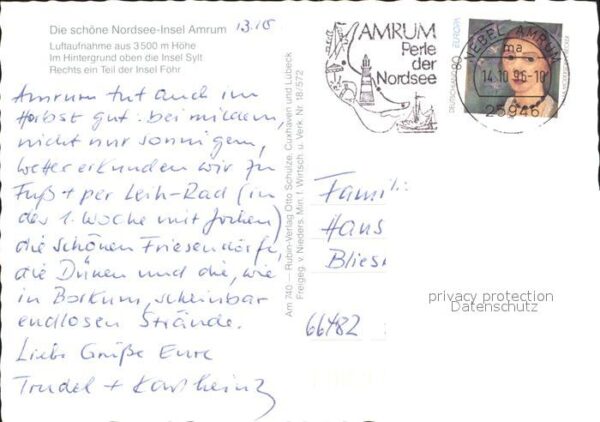 Die schöne Nordsee-Insel Amrum 13.10
Luftaufnahme aus 3500 m Höhe
Im Hintergrund oben die Insel Sylt
Rechts ein Teil der Insel Föhr
Amrum tut auch im
Herbst gut. bei mildem,
nicht nur sonnigem,
Wetter erkunden wir zu
Fuß + per Leih-Rad (in
der 1. Woche mit Jochen)
die schönen Friesendörfer,
die Dünen und die, wie
in Borkum, scheinbar
endlosen Strände.
Liebe Grüße Eure
Trudel + Karlheinz
Am 740 — Rubin-Verlag Otto Schulze, Cuxhaven und Lübeck
Freigeg. v. Nieders. Min. f. Wirtsch. u. Verk. Nr. 18/572
AMRUM
Perle
der
Nordsee
NEBEL, AMRUM
ma
14.10.96-10
25946
DEUTSCHLAND 80 EUROPA
Famili
Hans
Blies
66482
privacy protection
Datenschutz